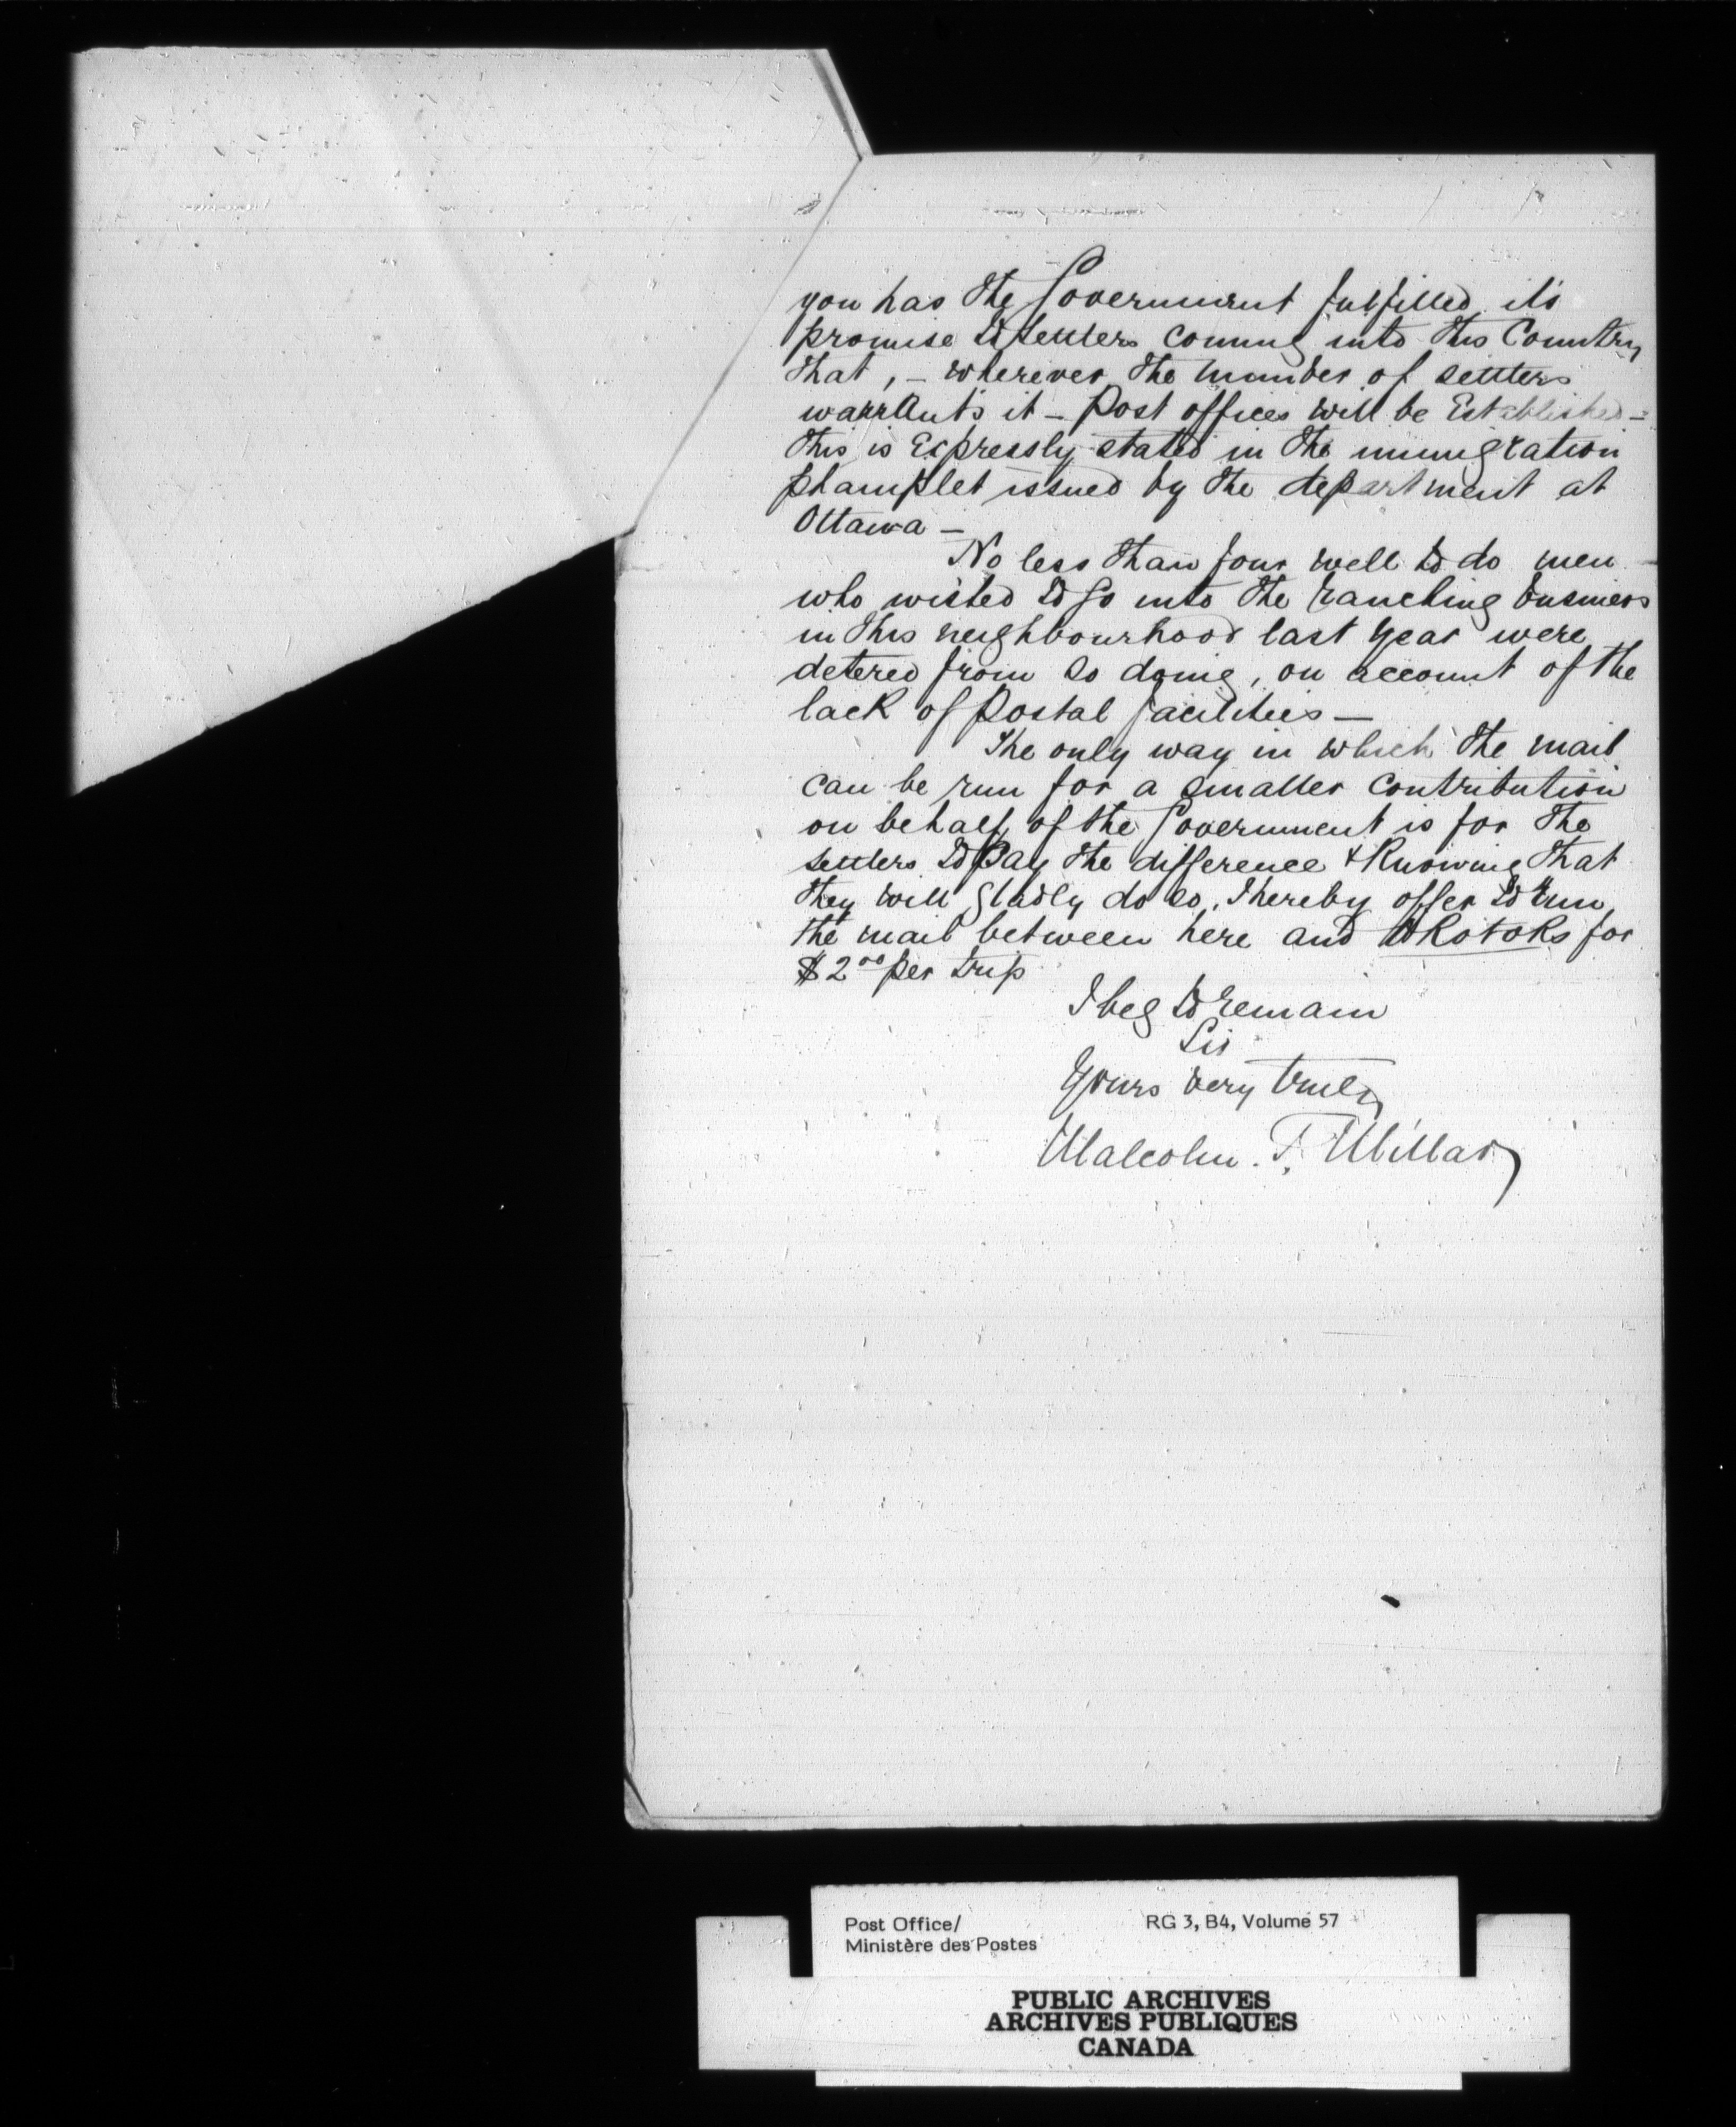 you has the Government fulfilled it's
promise to settlers coming into this Country
that, - wherever the number of settlers
warrant's it - Post offices will be Established -
This is Expressly stated in the immigration
phamplet issued by the department at
Ottawa -
No less than four well to do men
who wished to go into the ranching business
in this neighbourhood last year were
detered from so doing, on account of the
lack of Postal facilities -
The only way in which the mail
can be run for a smaller contribution
on behalf of the Government is for the
settlers to Pay the difference & Knowing that
they will gladly do so, I hereby offer to run
the mail between here and Okotoks for
$2.00 per trip
I beg to remain
Sir
Yours very truly
Malcolm. T. Millar
Post Office/ RG 3, B4, Volume 57
Ministère des Postes
PUBLIC ARCHIVES
ARCHIVES PUBLIQUES
CANADA